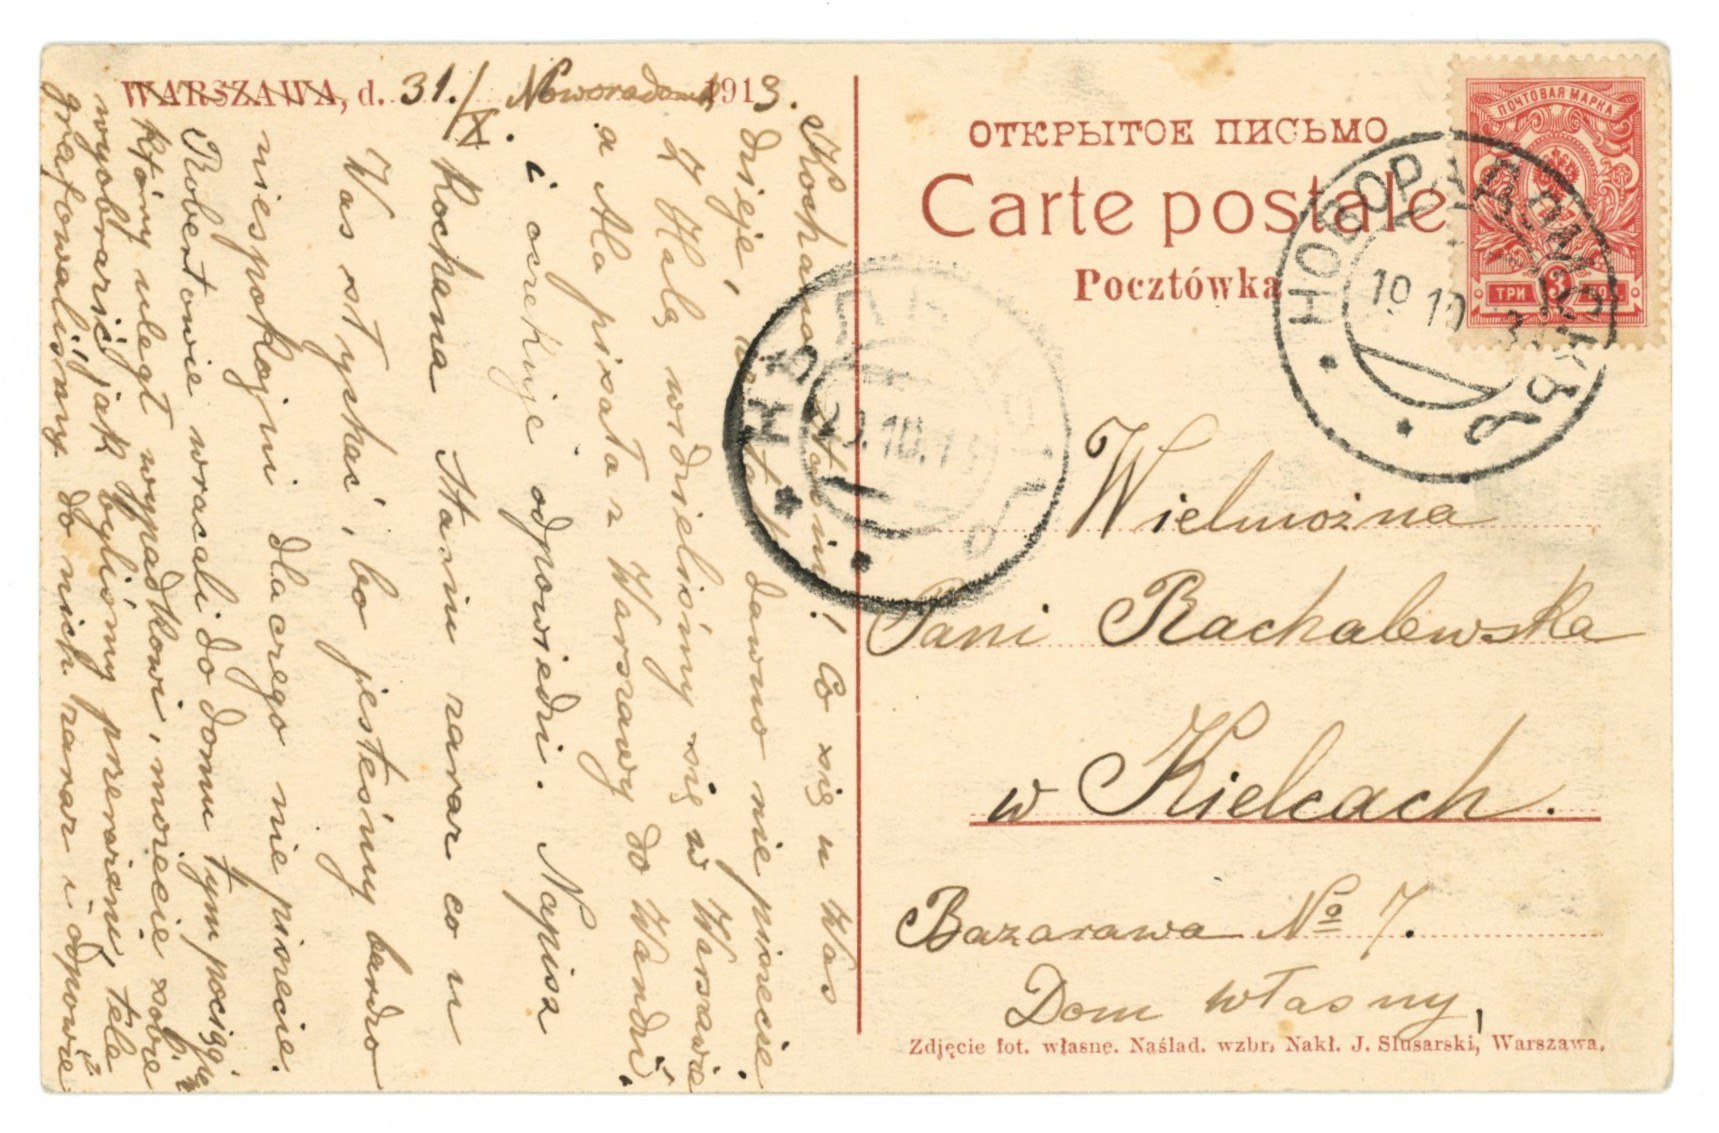 WARSZAWA, d. 31./X. Noworadomsk 1913.
Kochana Staniu! Co się u Was
dzieje, że tak dawno nie piszecie.
Z Halą widzieliśmy się w Warszawie
a Ala pisała z Warszawy do Wandzi
i oczekuje odpowiedzi. Napisz
kochana Staniu zaraz co u
Was słychać, bo jesteśmy bardzo
niespokojni dlaczego nie piszecie.
Robertowie wracali do domu tym pociągiem
który uległ wypadkowi, możecie sobie
wyobrazić jak byliśmy przerażeni, tele
grafowaliśmy do nich zaraz i odpowie
ОТКРЫТОЕ ПИСЬМО
Carte postale
Pocztówka
ПОЧТОВАЯ МАРКА
ТРИ 3 КОП.
НОВОРАДОМСКЪ
19 10
Wielmożna
Pani Rachalewska
w Kielcach.
Bazarawa No 7.
Dom własny,
Zdjęcie fot. własne. Naślad. wzbr. Nakł. J. Slusarski, Warszawa.